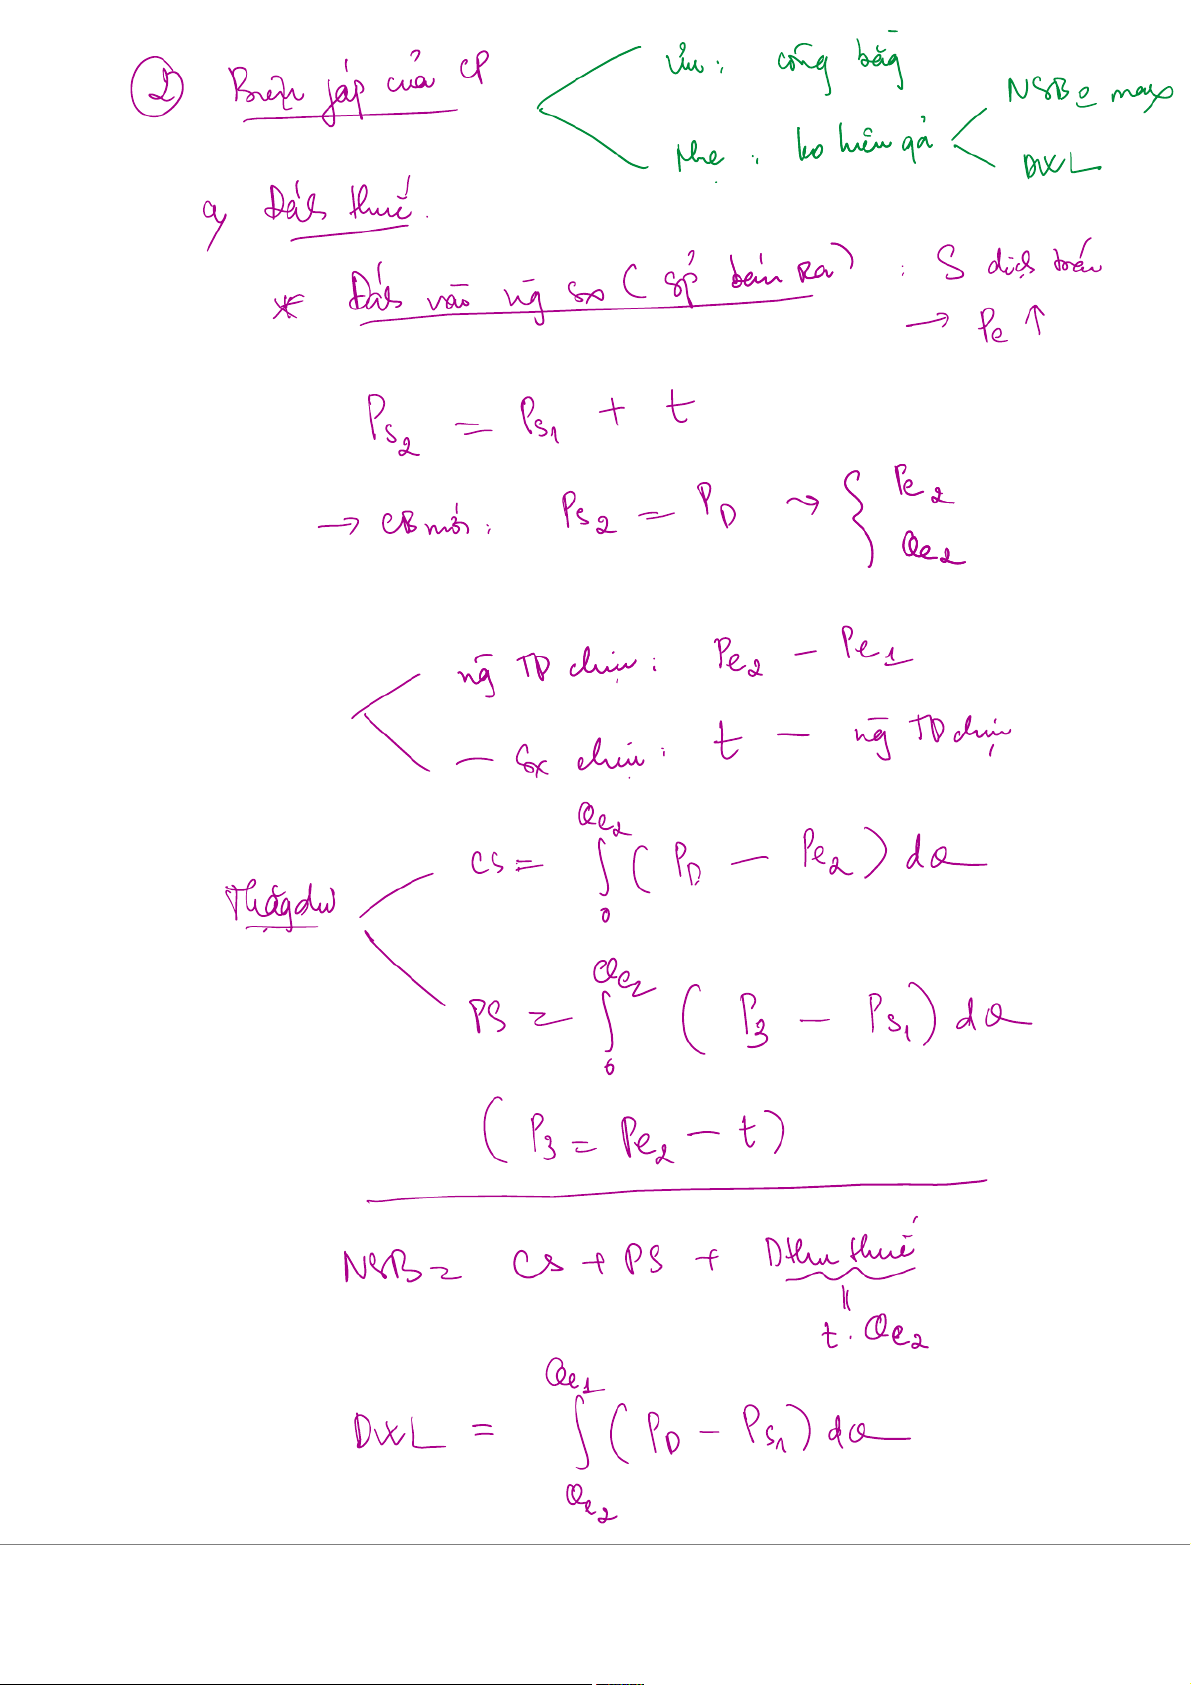 ② Biện ƒáp của CP
Ưu : công bằg
Nhc : ko hiệu qả
NSB o max
DWL
a, Đáh thuế.
* Đáh vào ng̃ sx ( sp̉ bán ra ) : S dịch trái
→ Pe ↑
P_S2 = P_S1 + t
→ CB mới : P_S2 = P_D ⇝ { Pe2
Qe2
ng̃ TD chịu : Pe2 − Pe1
− sx chịu : t − ng̃ TD chịu
Thặgdư
CS = ∫_0^Qe2 ( P_D − Pe2 ) dQ
PS = ∫_0^Qe2 ( P3 − P_S1 ) dQ
( P3 = Pe2 − t )
NSB = CS + PS + Dthu thuế
=
t . Qe2
DWL = ∫_Qe2^Qe1 ( P_D − P_S1 ) dQ